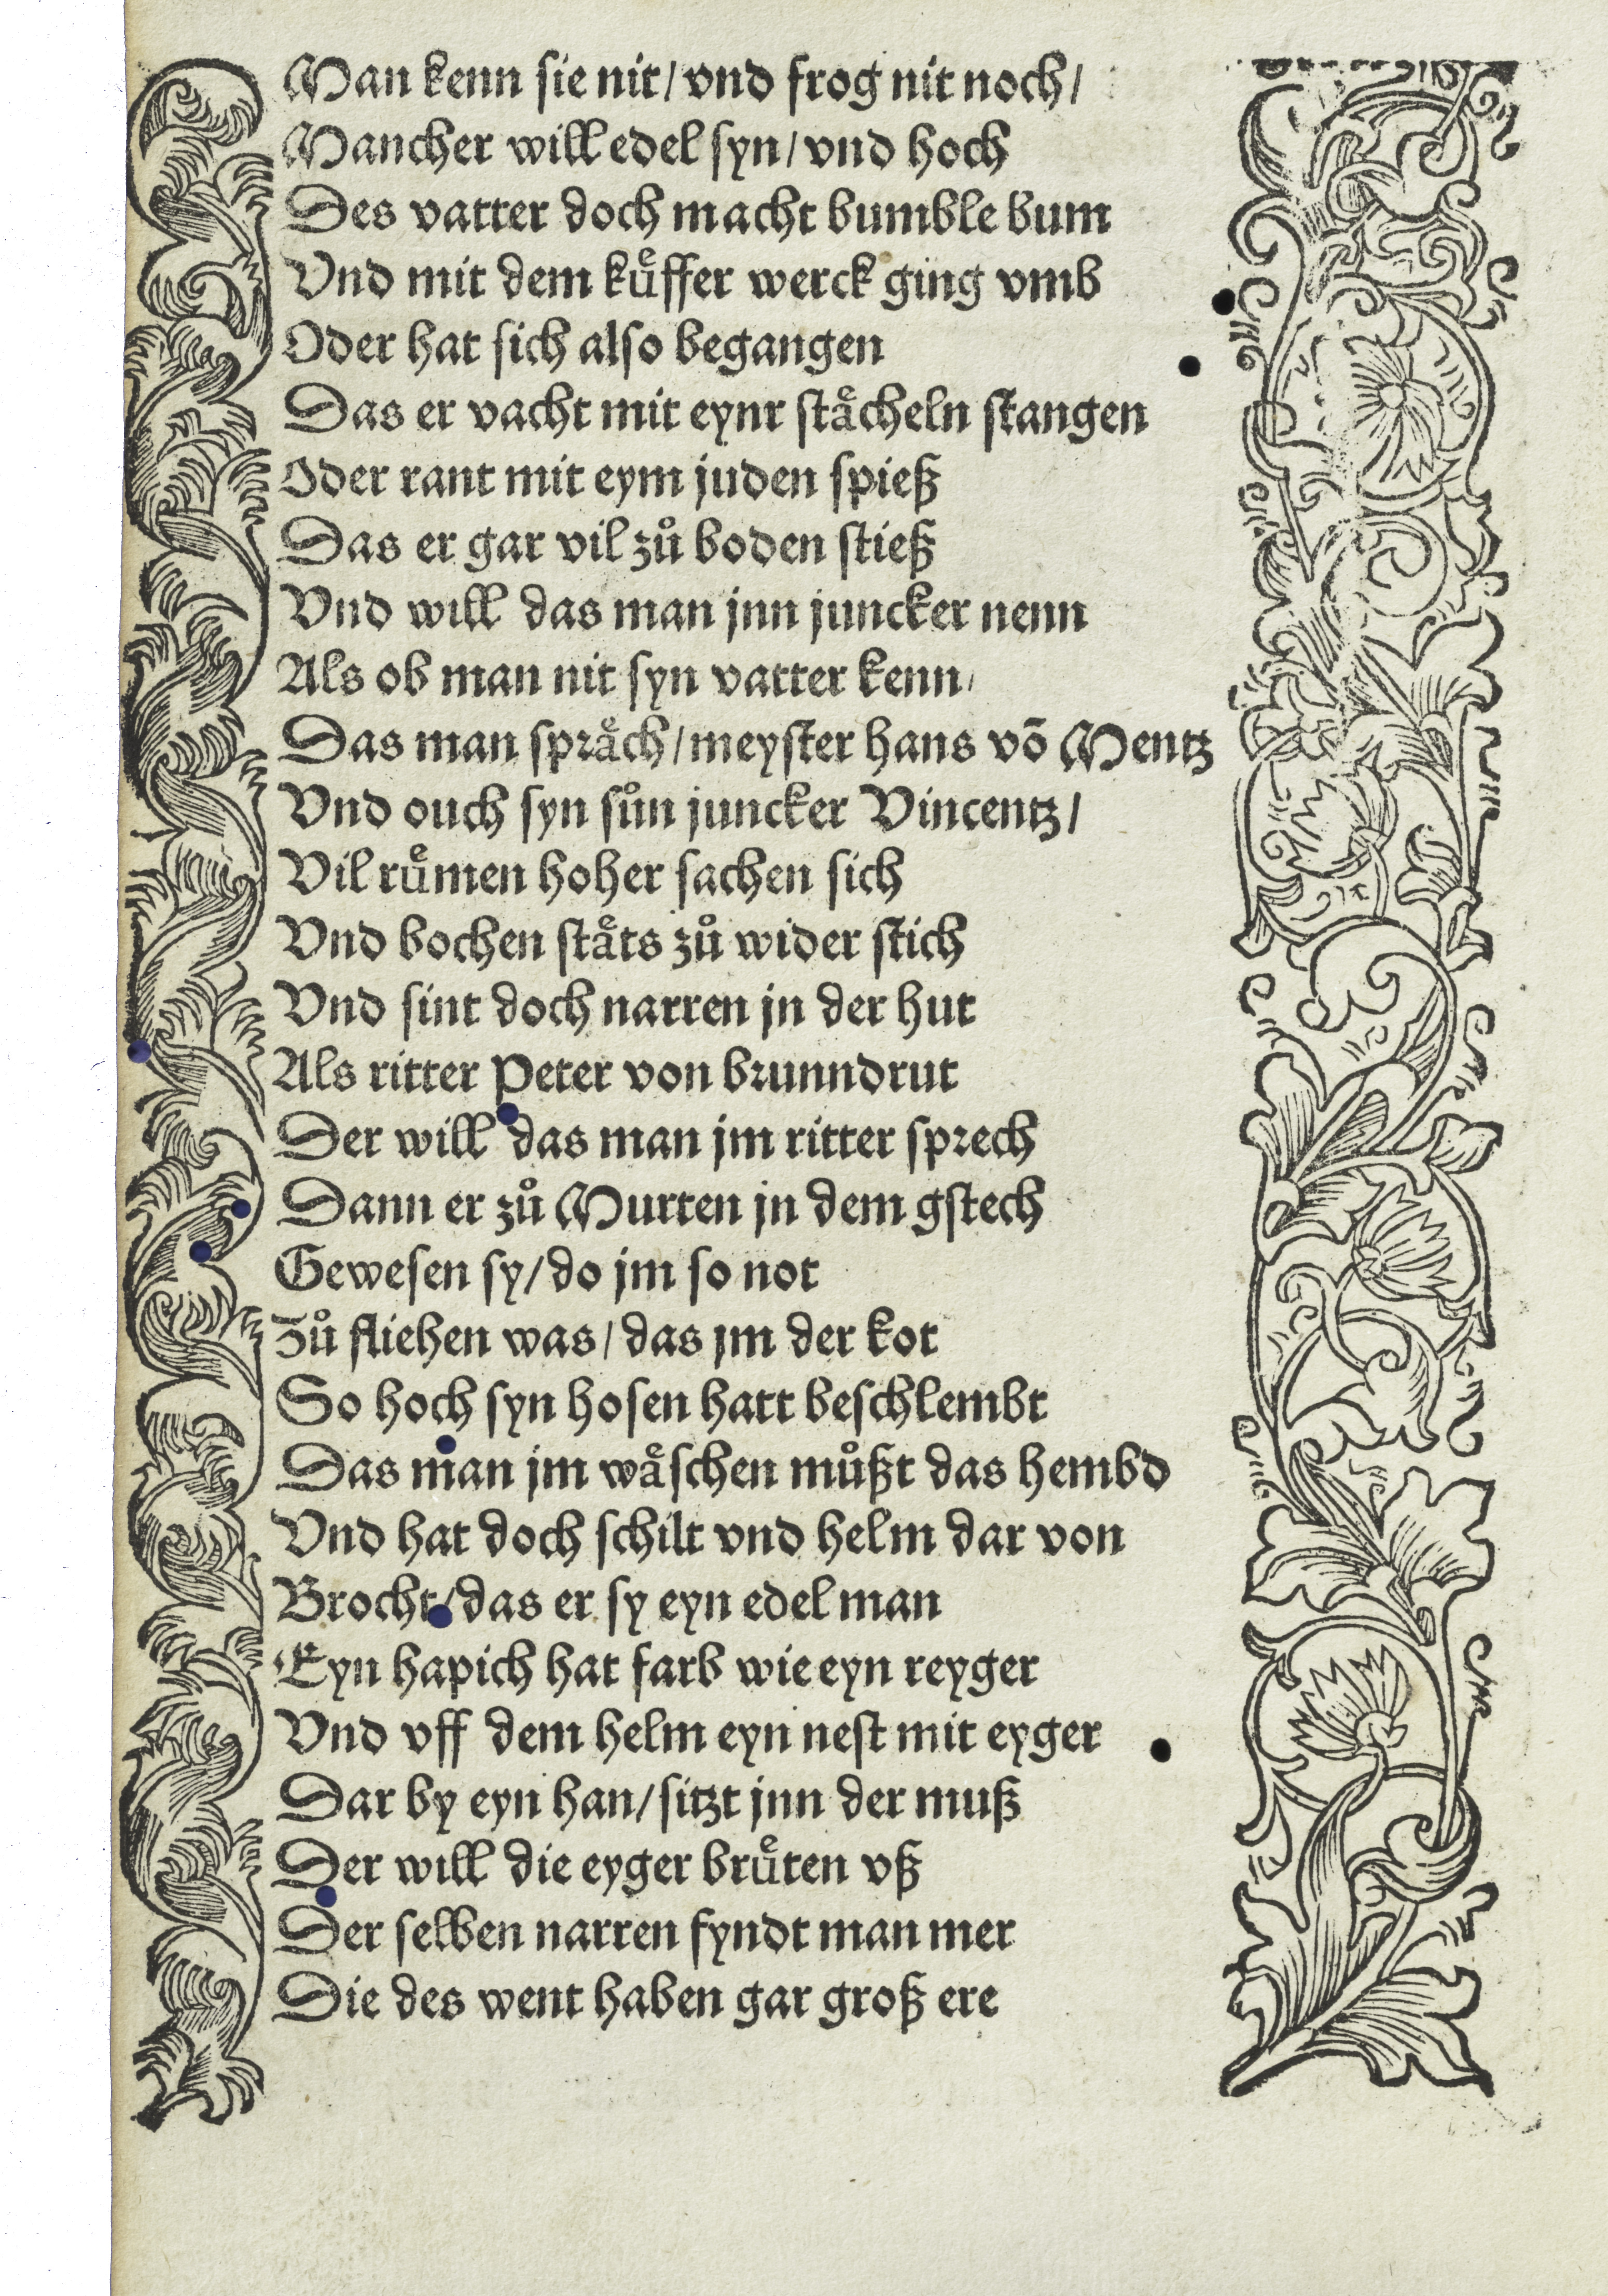 Man kenn sie nit/ vnd frog nit noch/
Mancher will edel syn/ vnd hoch
Des vatter doch macht bumble bum
Vnd mit dem kuͤffer werck ging vmb
Oder hat sich also begangen
Das er vacht mit eynr staͤcheln stangen
Oder rant mit eym juden spieß
Das er gar vil zuͦ boden stieß
Vnd will das man jnn juncker nenn
Als ob man nit syn vatter kenn/
Das man spraͤch/ meyster hans võ Mentz
Vnd ouch syn suͦn juncker Vincentz/
Vil ruͤmen hoher sachen sich
Vnd bochen staͤts zuͦ wider stich
Vnd sint doch narren jn der hut
Als ritter Peter von brunndrut
Der will das man jm ritter sprech
Dann er zuͦ Murten jn dem gstech
Gewesen sy/ do jm so not
Zuͦ fliehen was/ das jm der kot
So hoch syn hosen hatt beschlembt
Das man jm waͤschen muͦßt das hembd
Vnd hat doch schilt vnd helm dar von
Brocht/ das er sy eyn edel man
Eyn hapich hat farb wie eyn reyger
Vnd vff dem helm eyn nest mit eyger
Dar by eyn han/ sitzt jnn der muß
Der will die eyger bruͤten vß
Der selben narren fyndt man mer
Die des went haben gar groß ere